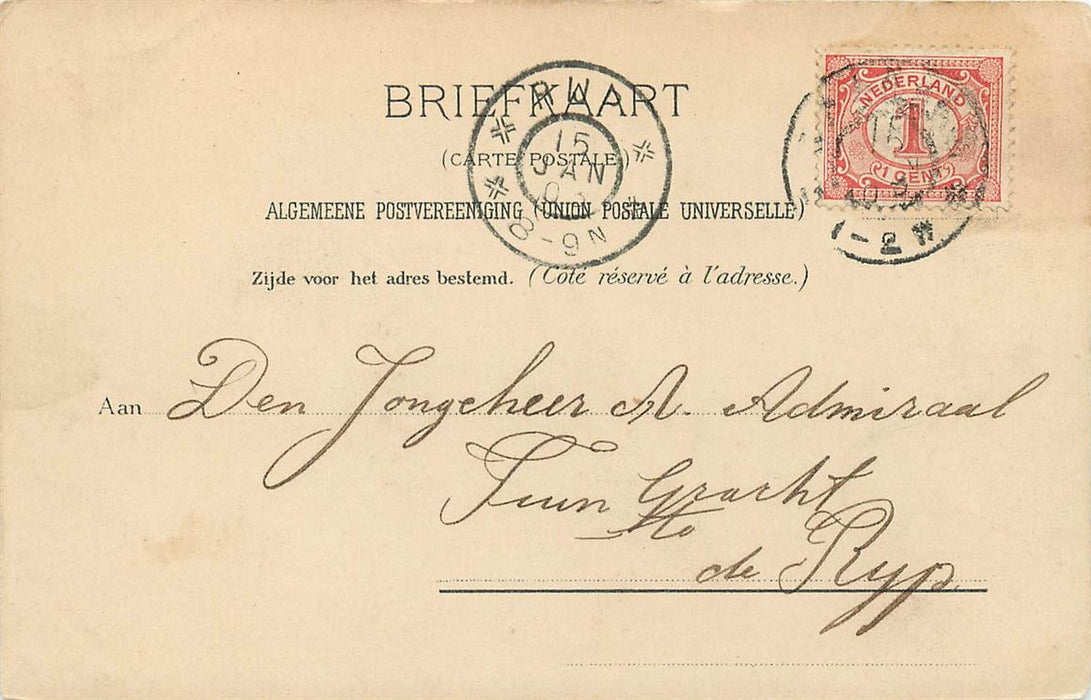 BRIEFKAART
(CARTE POSTALE)
ALGEMEENE POSTVEREENIGING (UNION POSTALE UNIVERSELLE)
Zijde voor het adres bestemd. (Côté réservé à l'adresse.)
15
JAN
8-9N
NEDERLAND
1
1 CENT
15
1-2
Aan Den Jongeheer A. Admiraal
Tuin Gracht
de Ryp